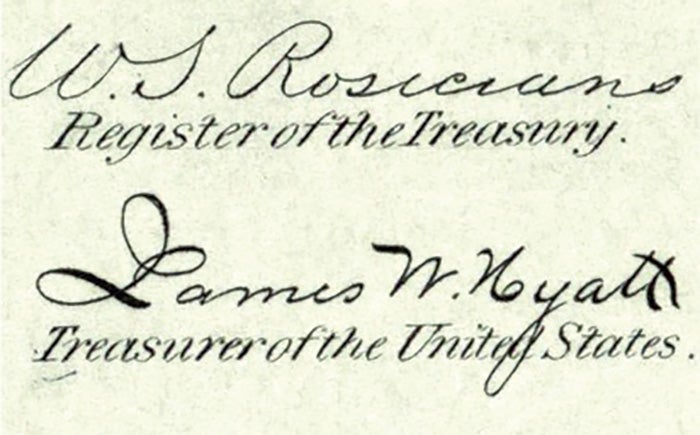 W. S. Rosecrans
Register of the Treasury.
James W. Hyatt
Treasurer of the United States.